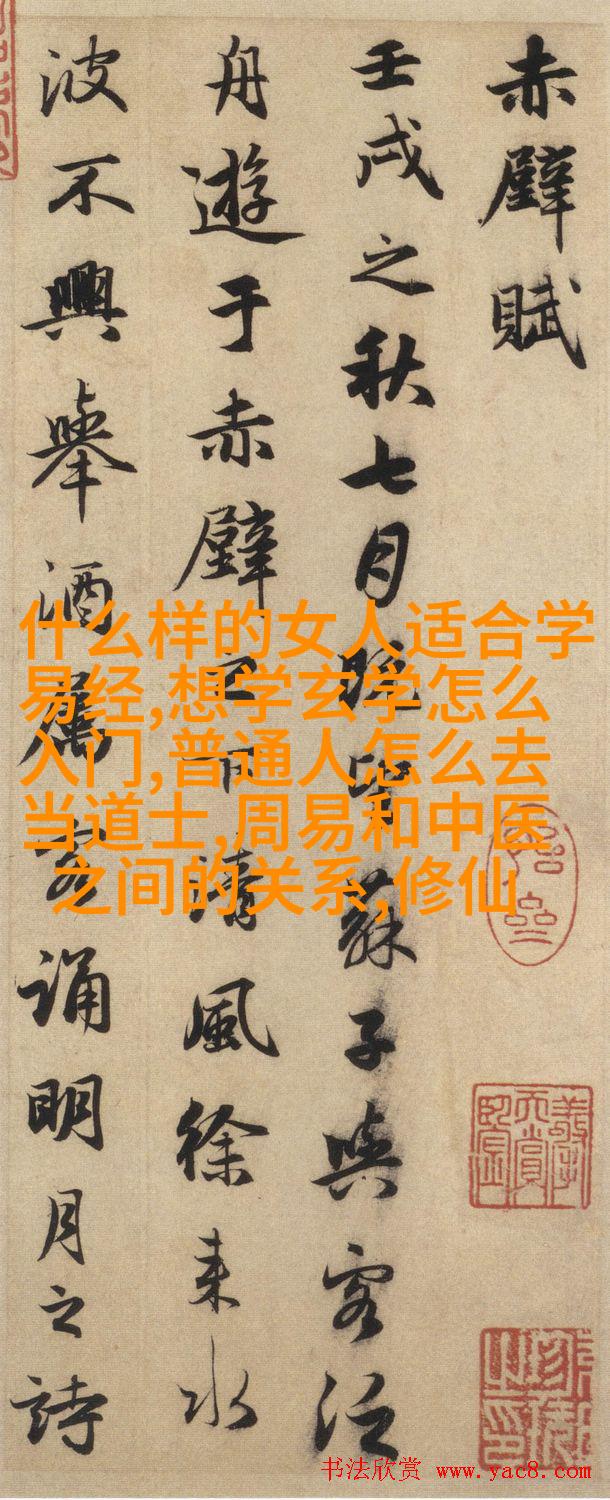 赤壁賦
壬戌之秋七月既望蘇子與客泛
舟遊于赤壁之下清風徐来水
波不興舉酒属客誦明月之詩
什么样的女人适合学
易经,想学玄学怎么
入门,普通人怎么去
当道士,周易和中医
之间的关系,修仙
书法欣赏 www.yac8.com